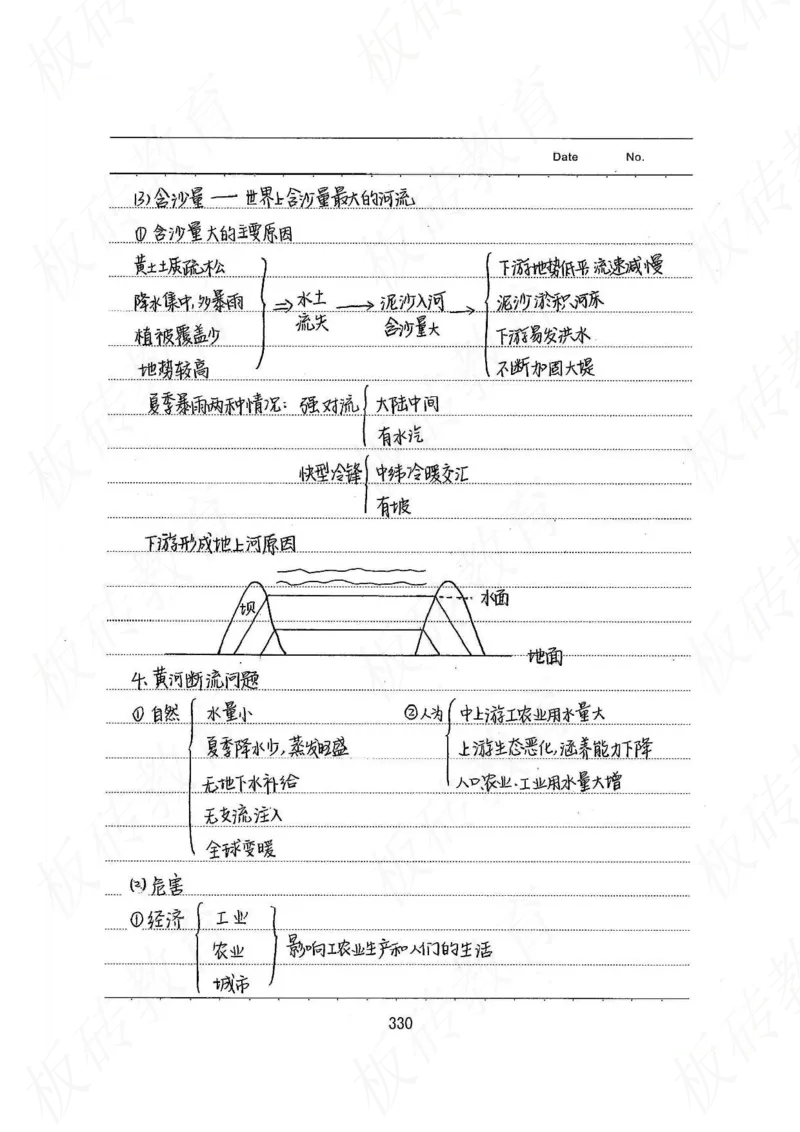 Date No.
(3)含沙量——世界上含沙量最大的河流
①含沙量大的主要原因
黄土土质疏松
降水集中,多暴雨
植被覆盖少
地势较高
⇒水土流失→泥沙入河含沙量大→
下游地势低平流速减慢
泥沙淤积河床
下游易发洪水
不断加固大堤
夏季暴雨两种情况：强对流
大陆中间
有水汽
快型冷锋
中纬冷暖交汇
有坡
下游形成地上河原因
坝
水面
地面
4、黄河断流问题
①自然
水量小
夏季降水少,蒸发旺盛
无地下水补给
无支流注入
全球变暖
②人为
中上游工农业用水量大
上游生态恶化,涵养能力下降
人口.农业.工业用水量大增
(2)危害
①经济
工业
农业
城市
影响工农业生产和人们的生活
330
板砖教育